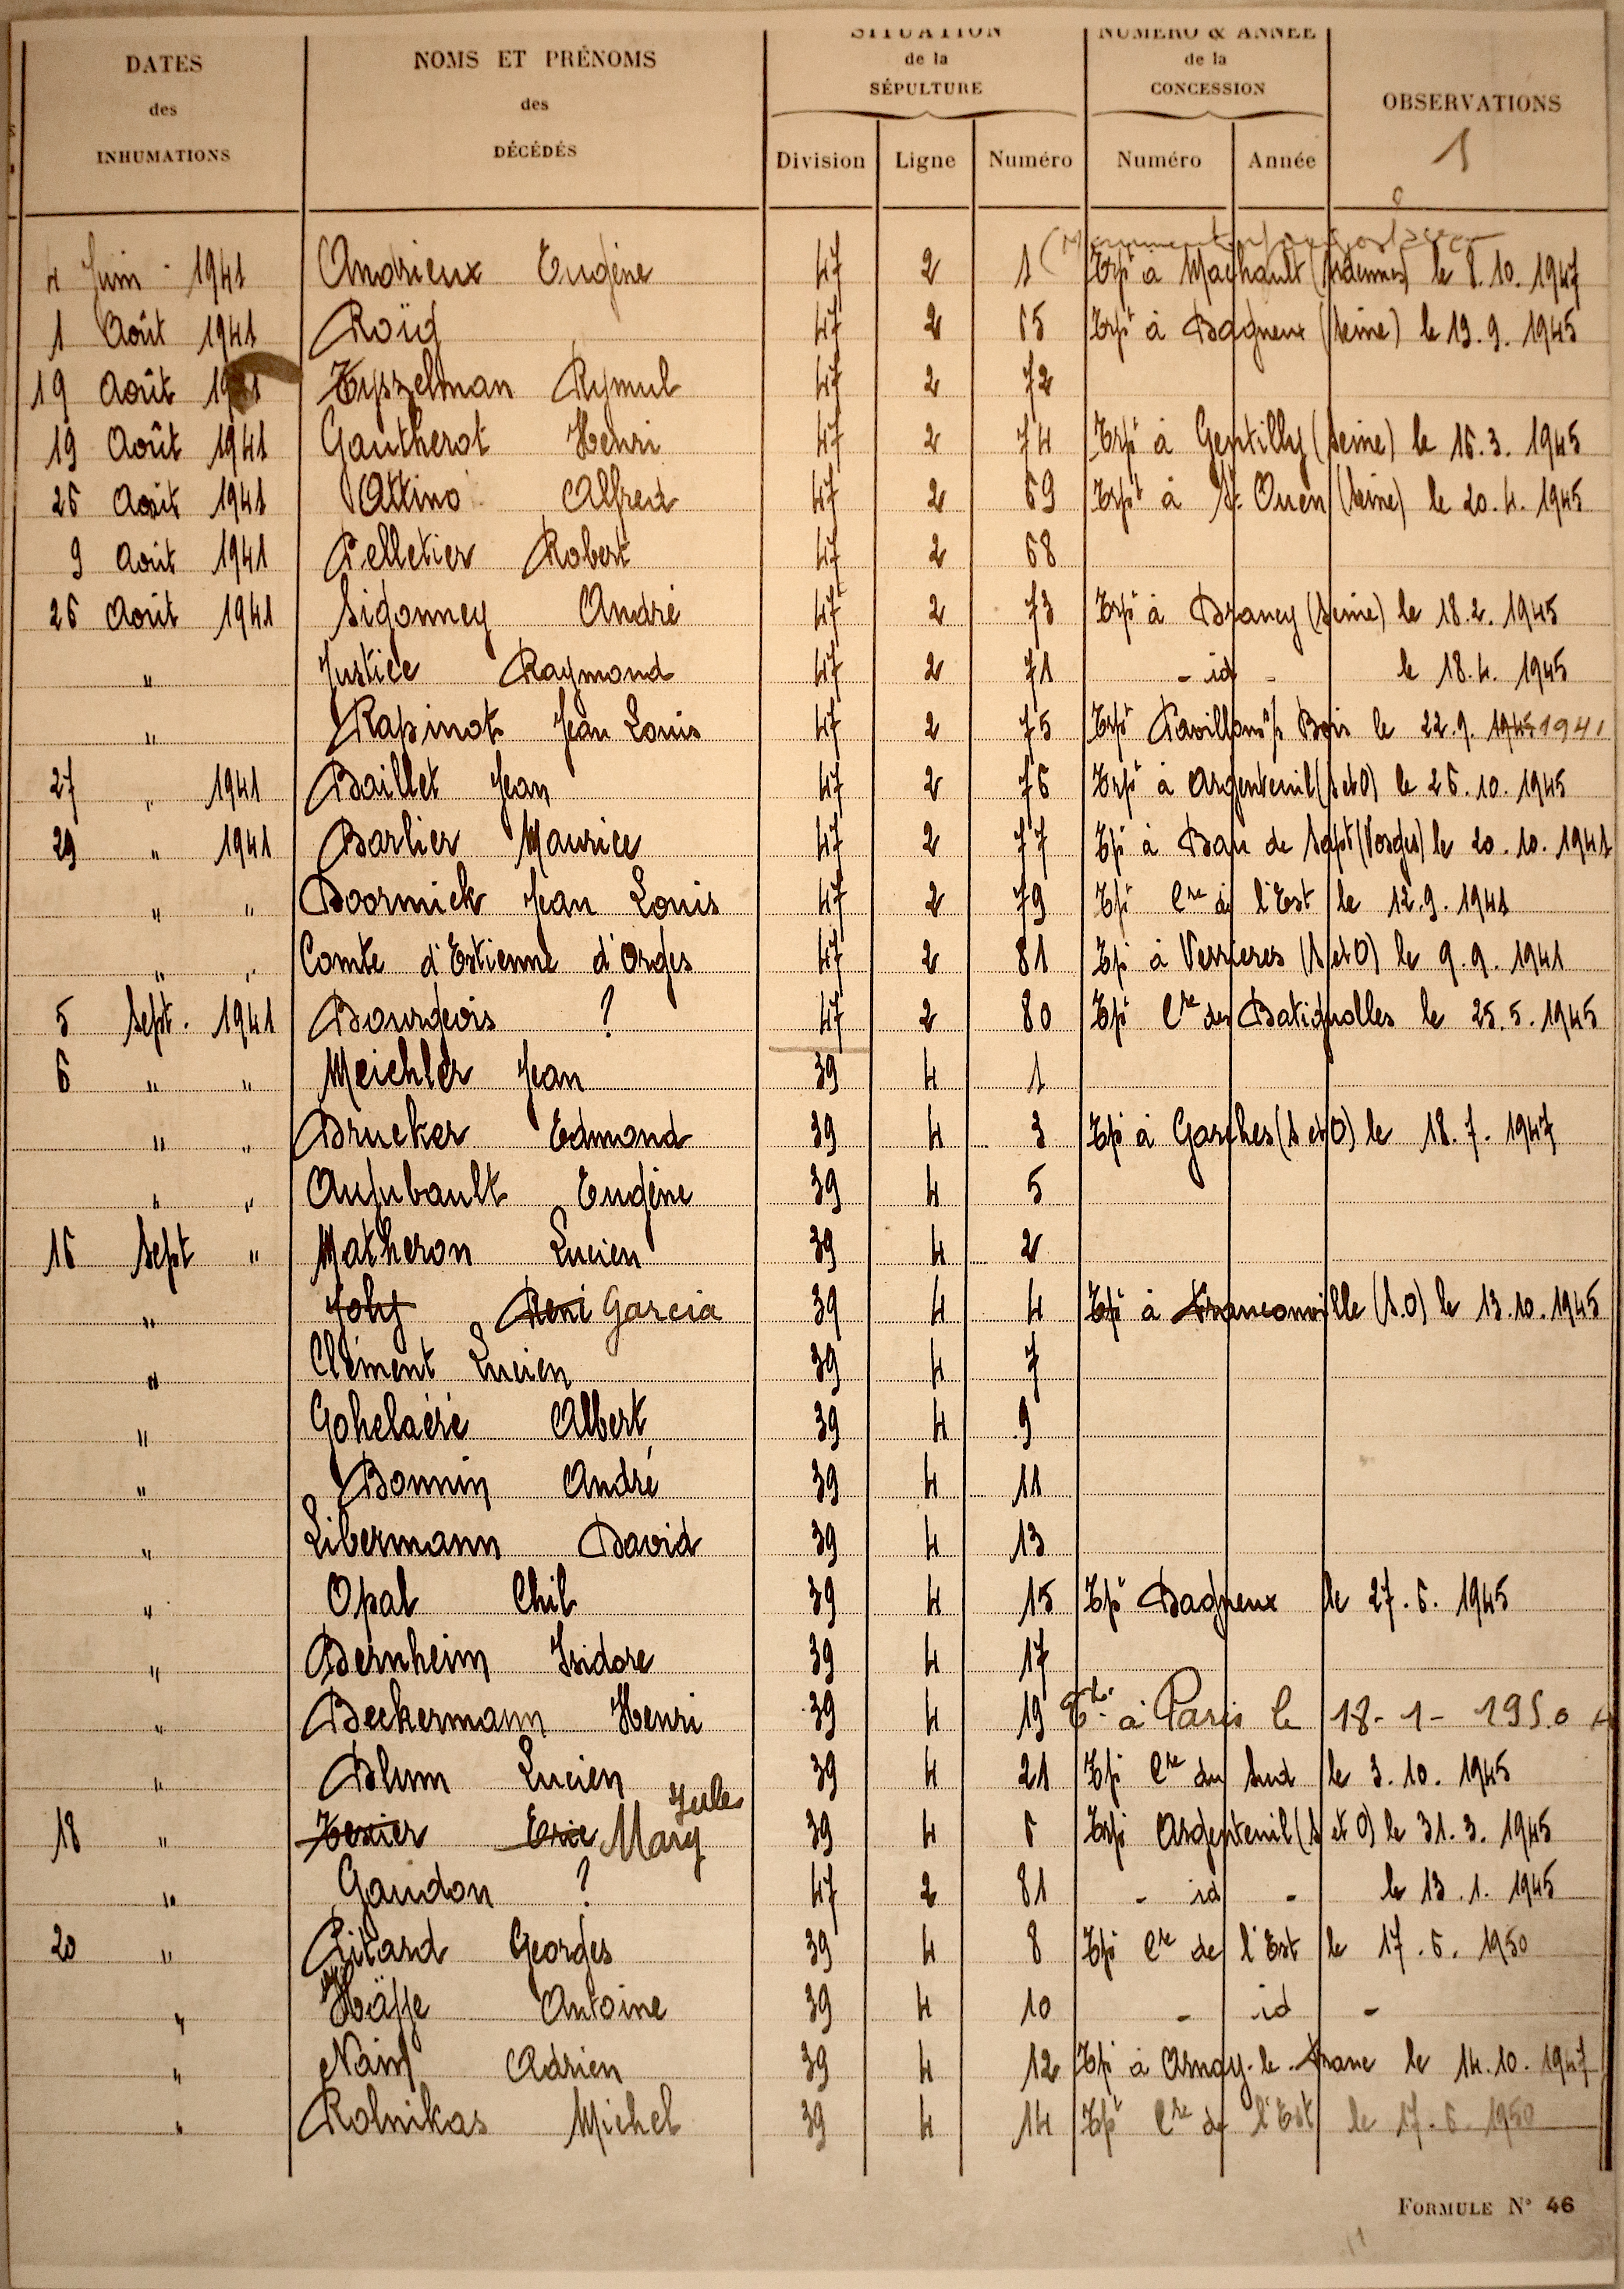 DATES des INHUMATIONS
NOMS ET PRÉNOMS des DÉCÉDÉS
SITUATION de la SÉPULTURE
NUMÉRO & ANNÉE de la CONCESSION
OBSERVATIONS
1
Division Ligne Numéro Numéro Année
4 Juin 1941 Andrieux Eugène 47 2 1 Trspt à Machault (Ardennes) le 8.10.1947
1 Août 1941 Roïg 47 2 65 Trspt à Bagneux (Seine) le 19.9.1945
19 Août 1941 Tyszelman Rymul 47 2 72
19 Août 1941 Gautherot Henri 47 2 74 Trspt à Gentilly (Seine) le 16.3.1945
26 Août 1941 Ottino Alfred 47 2 69 Trspt à St. Ouen (Seine) le 20.4.1945
9 Août 1941 Pelletier Robert 47 2 68
26 Août 1941 Sigonney André 47 2 73 Trspt à Drancy (Seine) le 18.2.1945
" Justice Raymond 47 2 71 - id - le 18.4.1945
" Rapinat Jean Louis 47 2 75 Trspt Pavillons s/s Bois le 22.9. 1945 1941
27 " 1941 Baillet Jean 47 2 76 Trspt à Argenteuil (S et O) le 26.10.1945
29 " 1941 Barlier Maurice 47 2 77 Tspt à Ban de Sapt (Vosges) le 20.10.1941
" " Doornick Jean Louis 47 2 79 Tspt Cre de l'Est le 12.9.1941
" " Comte d'Estienne d'Orves 47 2 81 Tspt à Verrieres (S et O) le 9.9.1941
5 Sept. 1941 Bourgeois ? 47 2 80 Tspt Cre des Batignolles le 25.5.1945
6 " " Meichler Jean 39 4 1
" " Drucker Edmond 39 4 3 Tspt à Garches (S et O) le 18.7.1947
" " Aujubault Eugène 39 4 5
16 Sept " Matheron Lucien 39 4 2
" Joly René Garcia 39 4 4 Tspt à Franconville (S.O) le 13.10.1945
" Clément Lucien 39 4 7
" Gohelaéré Albert 39 4 9
" Bonnin André 39 4 11
" Libermann David 39 4 13
" Opal Chil 39 4 15 Tspt Bagneux le 27.6.1945
" Bernheim Isidore 39 4 17
" Beckermann Henri 39 4 19 à Paris le 18-1-1950
" Blum Lucien 39 4 21 Tspt Cre du Sud le 3.10.1945
18 " Texier Eric Mary Jule 39 4 6 Trspt Argenteuil (S et O) le 31.3.1945
" Gaudon ? 47 2 81 - id - le 13.1.1945
20 " Pitard Georges 39 4 8 Tspt Cre de l'Est le 17.6.1950
" Hajje Antoine 39 4 10 - id -
" Nain Adrien 39 4 12 Tspt à Arnay-le-Franc le 14.10.1947
" Rolnikas Michel 39 4 14 Tspt Cre de l'Est le 17.6.1950
FORMULE N° 46